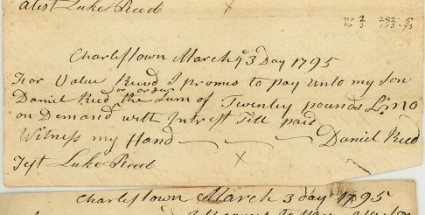 atest Luke Reed x
no 2 282=5
Charlestown March ye 3 Day 1795
For Value Recd I promis to pay unto my Son
Daniel Reed or order the Sum of Twentey pounds L m o
on Demand with Intrest Till paid
Witness my Hand Daniel Reed
Test Luke Reed x
Charlestown March 3 day 1795